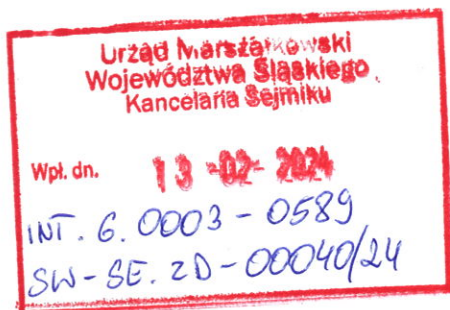 Urząd Marszałkowski
Województwa Śląskiego
Kancelaria Sejmiku
Wpł. dn. 13 -02- 2024
INT. 6.0003-0589
SW-SE.ZD-00040/24